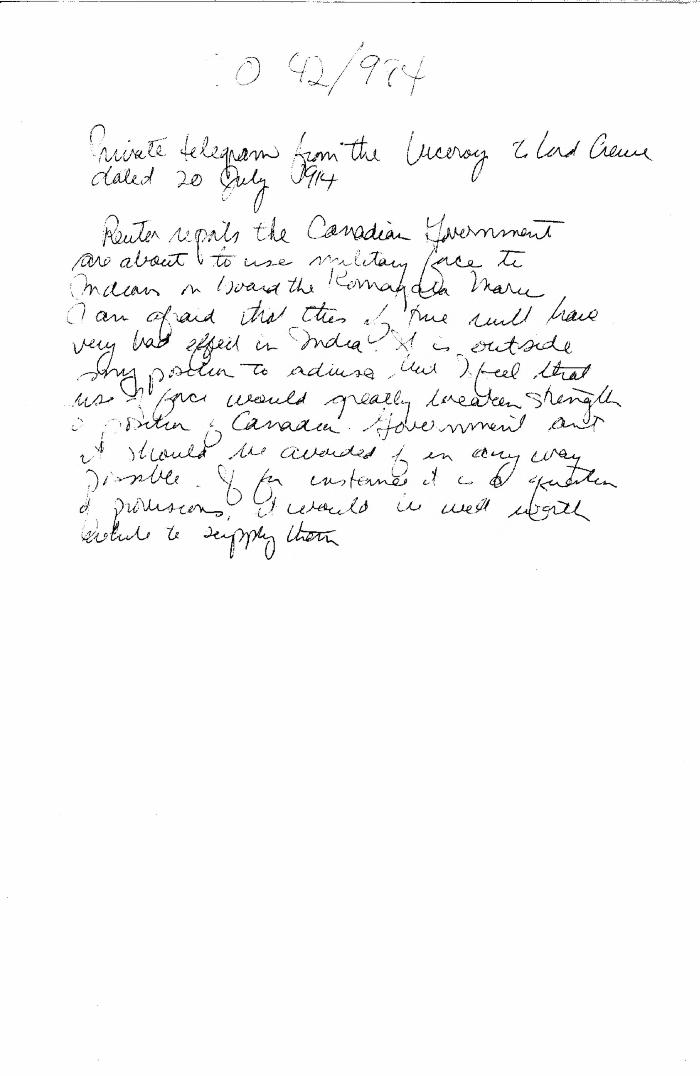 CO 42/974
Private telegram from the Viceroy to Lord Crewe
dated 20 July 1914
Reuter reports the Canadian Government
are about to use military force to
Indians on board the Komagata Maru
I am afraid that this if true will have
very bad effect in India. It is outside
my position to advise, but I feel that
use of force would greatly weaken strength
o position of Canadian Government and
it should be avoided if in any way
possible. If for instance it is a question
of provisions, it would be well worth
while to supply them